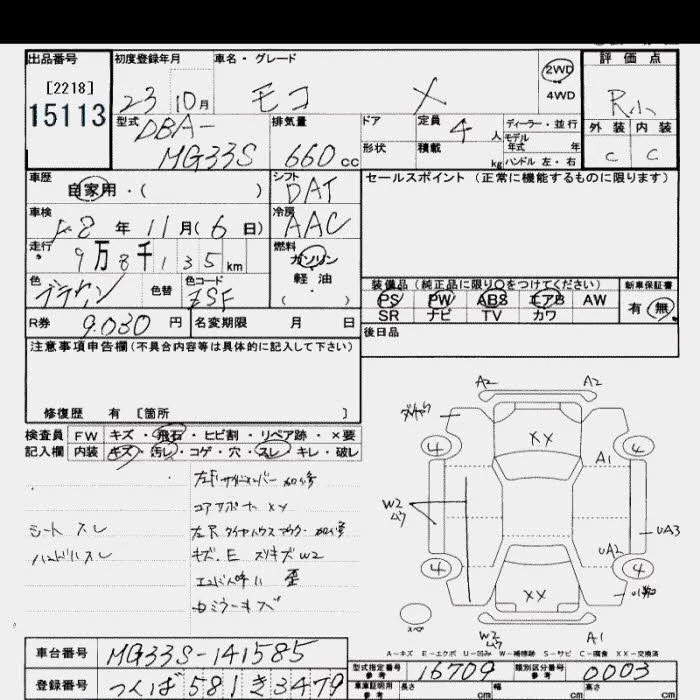 出品番号
[2218]
15113
初度登録年月
23 10月
車名・グレード
モコ X
2WD
4WD
評価点
R小
外装 内装
C C
型式
DBA-
MG33S
排気量
660cc
ドア
形状
定員
4人
積載
kg
ディーラー・並行
モデル
年式 年
ハンドル 左・右
車歴
自家用・( )
シフト
DAT
セールスポイント (正常に機能するものに限ります)
車検
28年 11月(6日)
冷房
AAC
走行
9万8千135km
燃料
ガソリン
軽油
( )
色
ブラウン
色替
色コード
ZSF
装備品(純正品に限り○をつけてください)
PS PW ABS エアB AW
SR ナビ TV カワ
新車保証書
有 無
R券
9,030円
名変期限 月 日
後日品
注意事項申告欄(不具合内容等は具体的に記入して下さい)
修復歴 有 [箇所 ]
検査員
記入欄
FW キズ・飛石・ヒビ割・リペア跡・×要
内装 キズ・汚レ・コゲ・穴・スレ・キレ・破レ
コアサポート XX
シート スレ
ハンドル スレ
キズ.E スリキズ W2
歪
ミラーキズ
A2 A2
XX
4 4
A1
W2
UA3
UA2
4 4
XX
スペア
W2
A1
A-キズ E-エクボ U-凹み W-補修跡 S-サビ C-腐食 XX-交換済
車台番号
MG33S-141585
型式指定番号
参考
16709
類別区分番号
参考
0003
登録番号
つくば581き3479
車庫証明用
参考
長さ cm 幅 cm 高さ cm